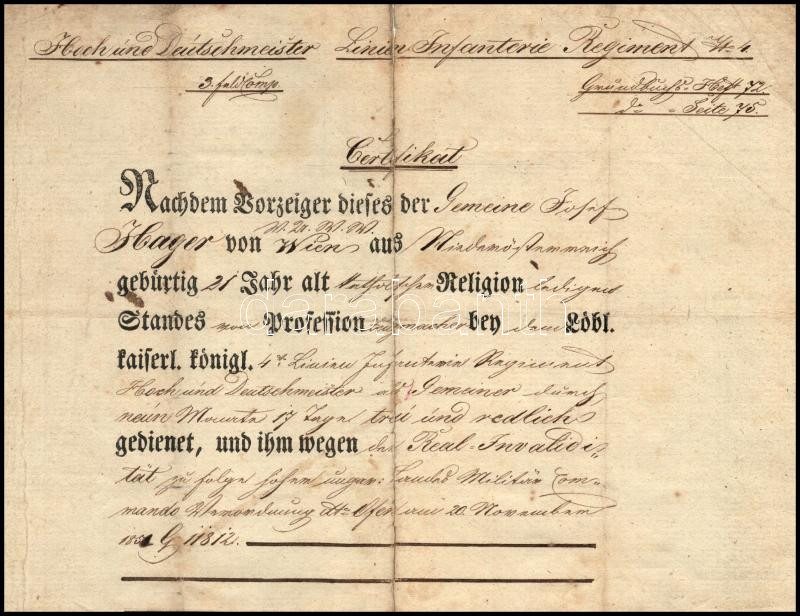 Hoch und Deutschmeister Linien Infanterie Regiment № 4
3. Feld Comp.
Grundbuchs-Heft 72.
do - Seite 75.
Certifikat
Nachdem Vorzeiger dieses der Gemeine Josef
Hager von Wien aus Niederösterreich
gebürtig 21 Jahr alt Religion ledigen
Standes von Profession bey dem Löbl.
kaiserl. königl. 4t Linien Infanterie Regiment
Hoch und Deutschmeister als Gemeiner durch
neun Monate 17 Tage treü und redlich
gedienet, und ihm wegen der Real-Invalidi-
tät zu folge hoher ungar: Landes Militär Com-
mando Verordnung dto Ofen am 20. November
G 11812.
darabanth